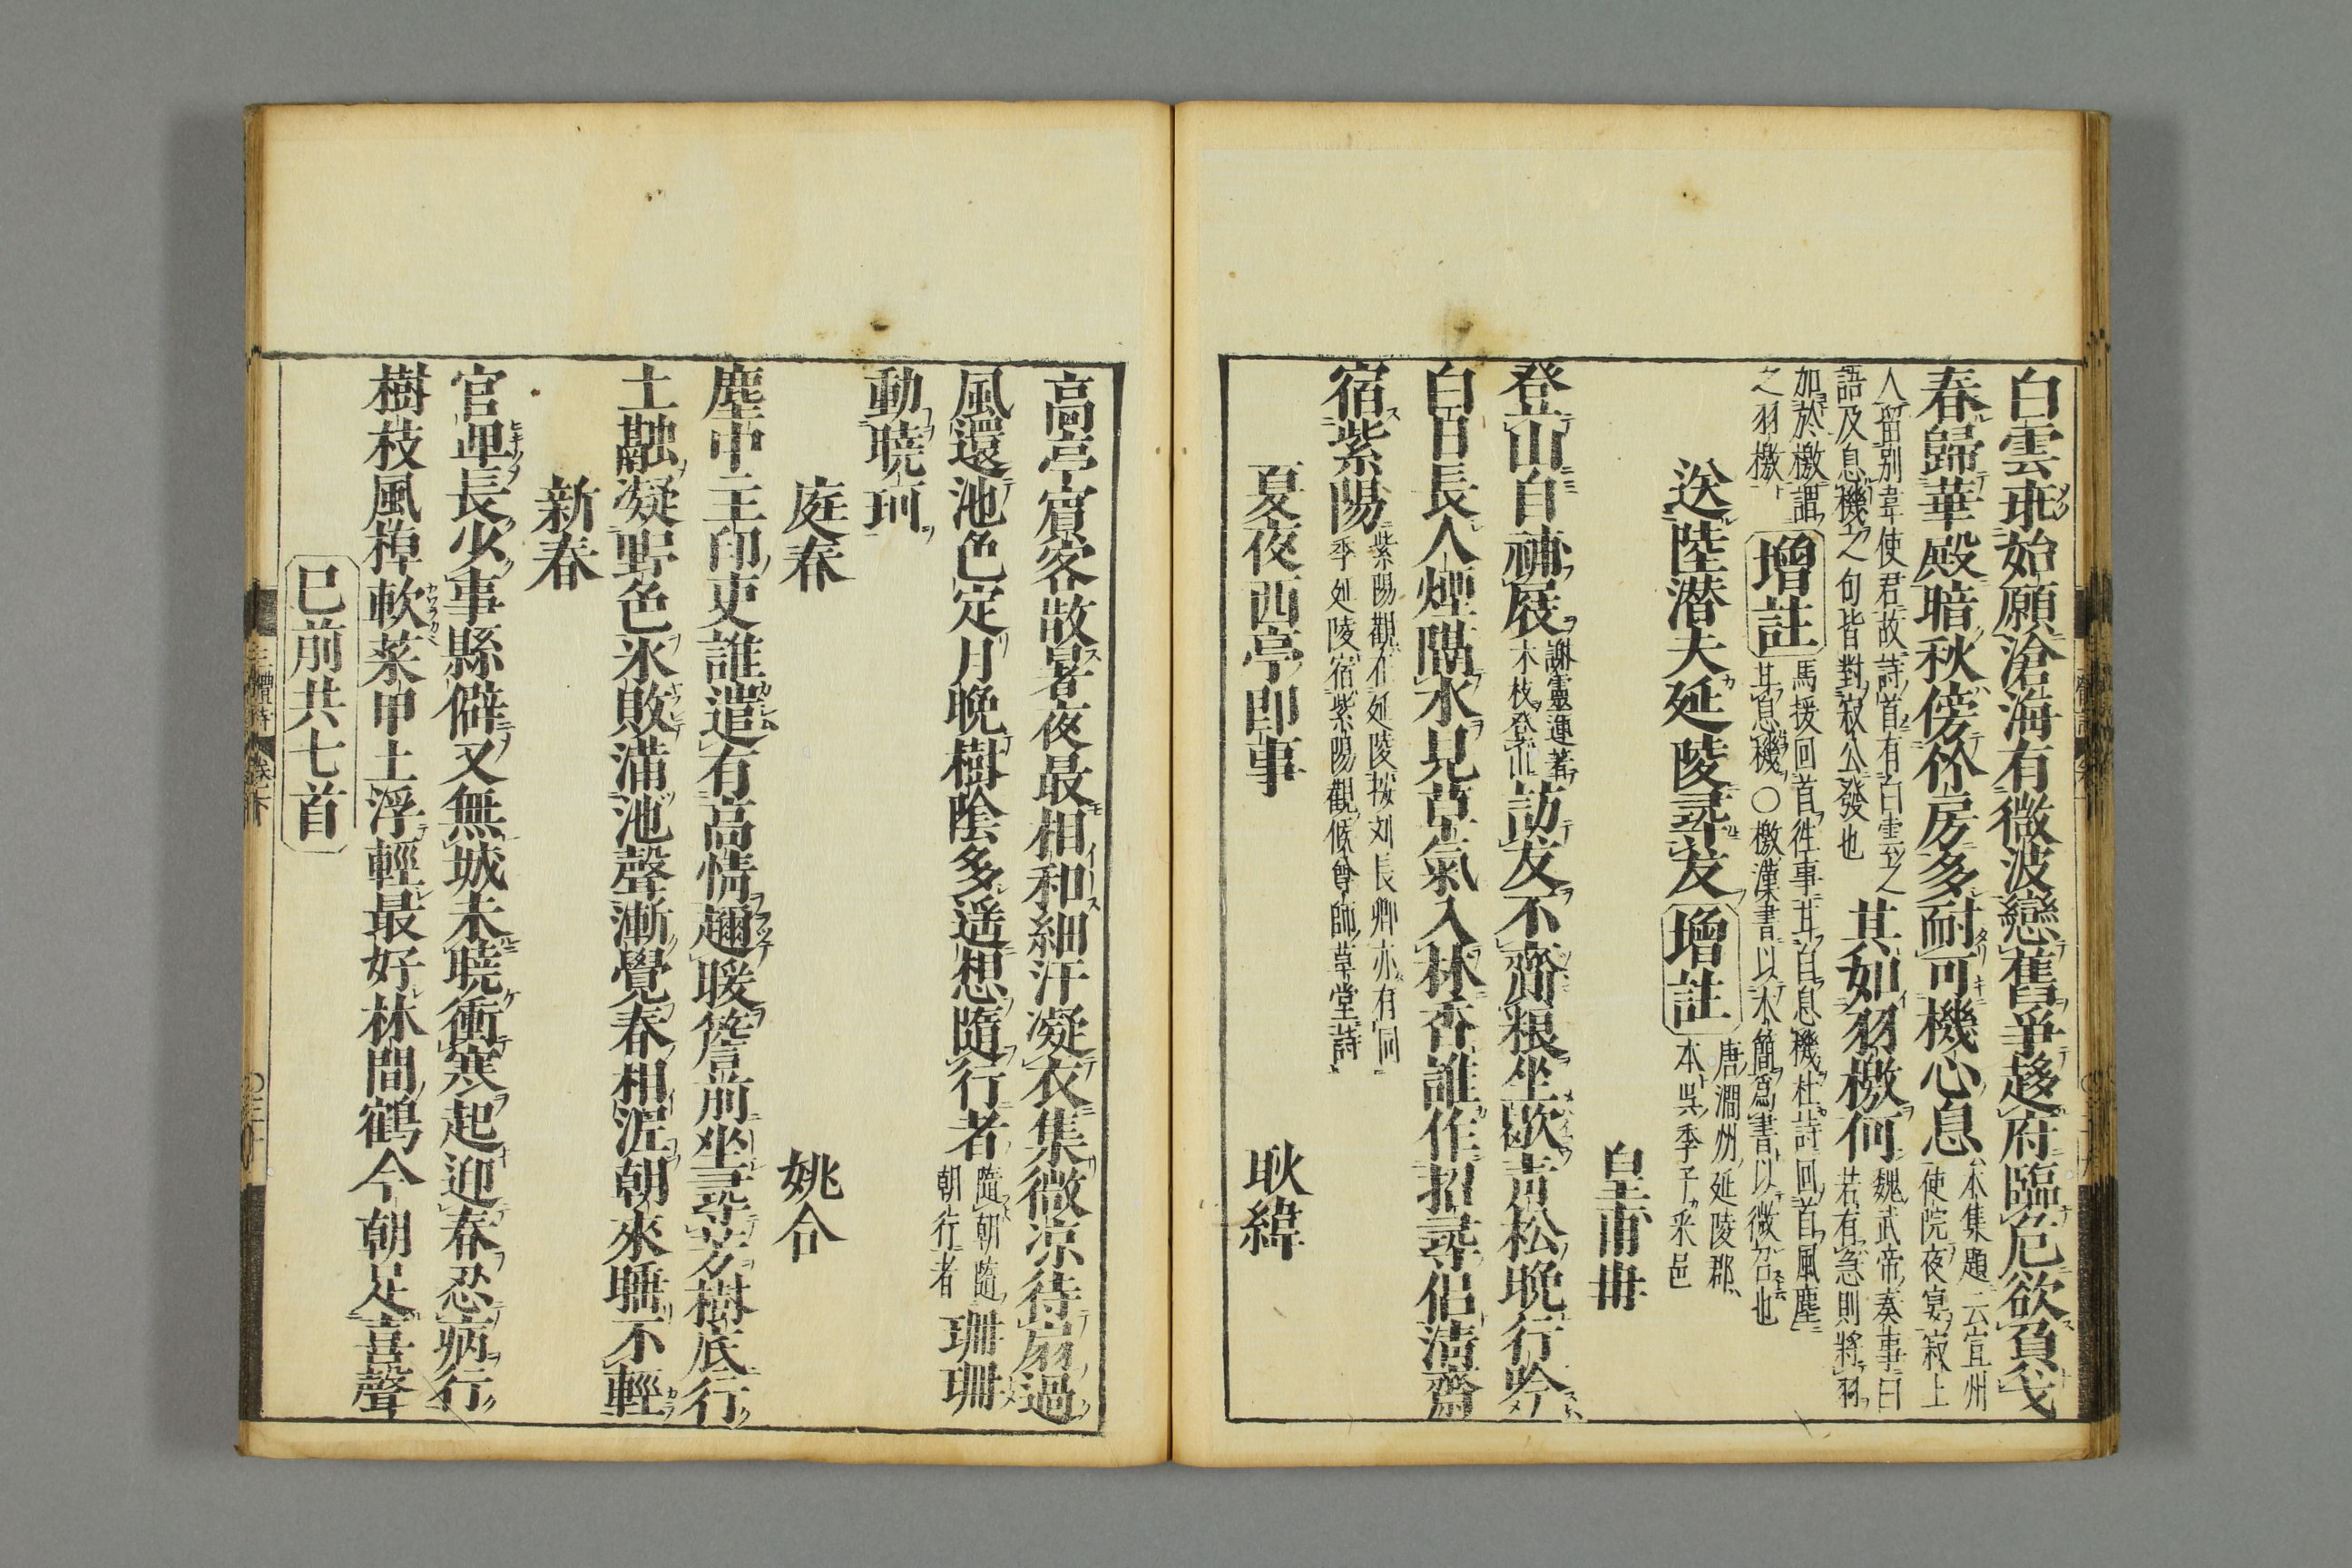 白雲飛始願滄海有微波戀舊爭趍府臨危欲負戈
春歸華殿暗秋傍竹房多耐可機心息
本集題云宣州
使院夜宴寂上
人留別韋使君故詩首有白雲之
語及息機之句皆對寂公發也
其如羽檄何
魏武帝奏事曰
若有急則將羽
加於檄謂
之羽檄
增註
馬援回首往事甘自息機杜詩回首風塵
甘息機○檄漢書以木簡爲書以徴召也
送陸潜夫延陵尋友
增註
唐潤州延陵郡
本呉季子采邑
皇甫冉
登山自補屐
謝靈運著
木枝登山
訪友不齎粮坐歇青松晚行吟
白日長人煙隔水見草氣入林香誰作招尋侶淸齋
宿紫陽
紫陽觀在延陵按刘長卿亦有同
季延陵宿紫陽觀候尊師草堂詩
夏夜西亭即事
耿緯
高亭賓客散暑夜最相和細汗凝衣集微凉待扇過
風還池色定月晚樹陰多遥想隨行者
隨朝隨
朝行者
珊珊
動曉珂
庭春
姚合
塵中主印吏誰遣有高情趣暖簷前坐尋芳樹底行
土融凝野色氷敗滿池聲漸覺春相泥朝來睡不輕
新春
官卑長少事縣僻又無城未曉衝寒起迎春忍病行
樹枝風掉軟菜甲土浮輕最好林間鶴今朝足喜聲
已前共七首
三體詩
卷下